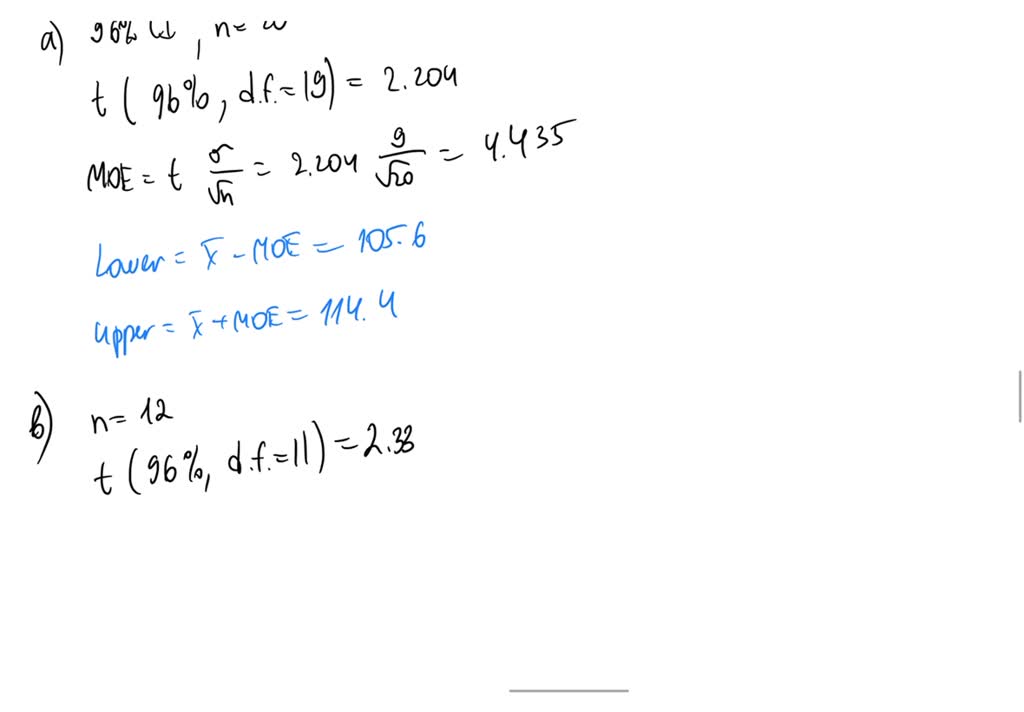 a) 96% , n=
t ( 96%, d.f.=19) = 2.204
MOE = t σ/√n = 2.204 9/√20 = 4.435
Lower = x̄ - MOE = 105.6
upper = x̄ + MOE = 114.4
b) n= 12
t (96%, d.f.=11) = 2.33